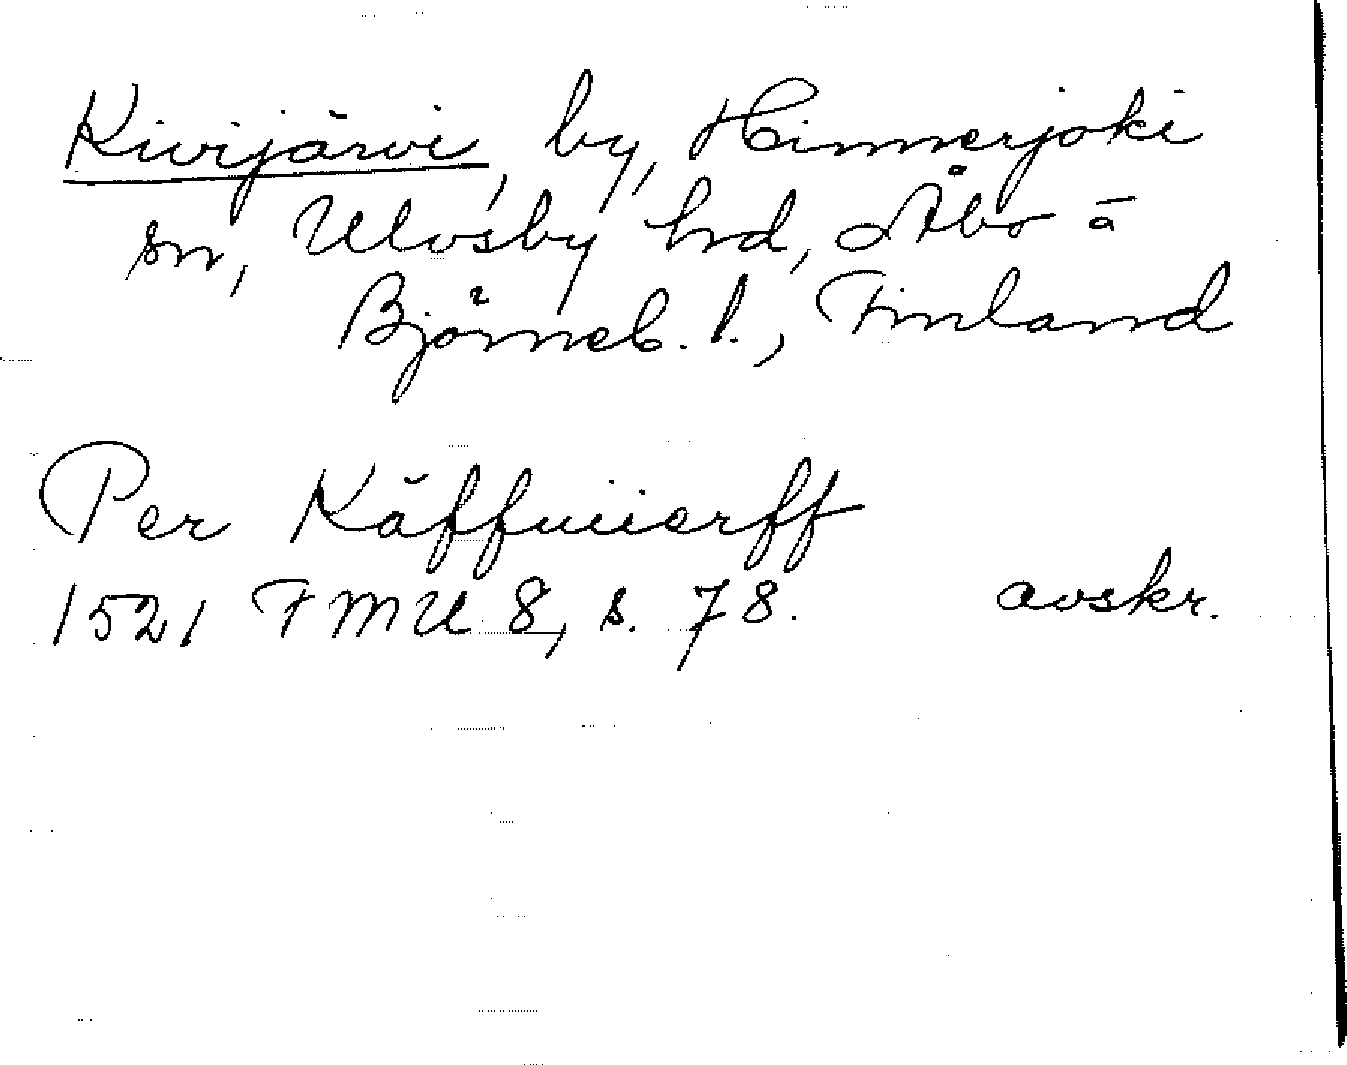 Kivijärvi, by, Hinnerjoki
sn, Ulvsby hrd, Åbo å
Björneb. l., Finland
Per Käffuiierff
1521 FMU 8, s. 78. avskr.